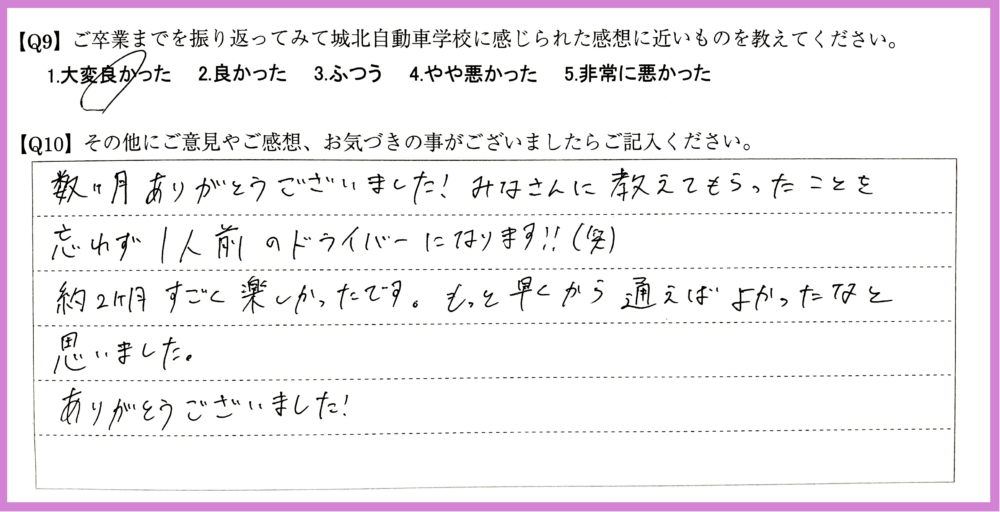 【Q9】ご卒業までを振り返ってみて城北自動車学校に感じられた感想に近いものを教えてください。
1.大変良かった 2.良かった 3.ふつう 4.やや悪かった 5.非常に悪かった
【Q10】その他にご意見やご感想、お気づきの事がございましたらご記入ください。
数ヶ月ありがとうございました!みなさんに教えてもらったことを
忘れず1人前のドライバーになります!!(笑)
約2ヶ月すごく楽しかったです。もっと早くから通えばよかったなと
思いました。
ありがとうございました!